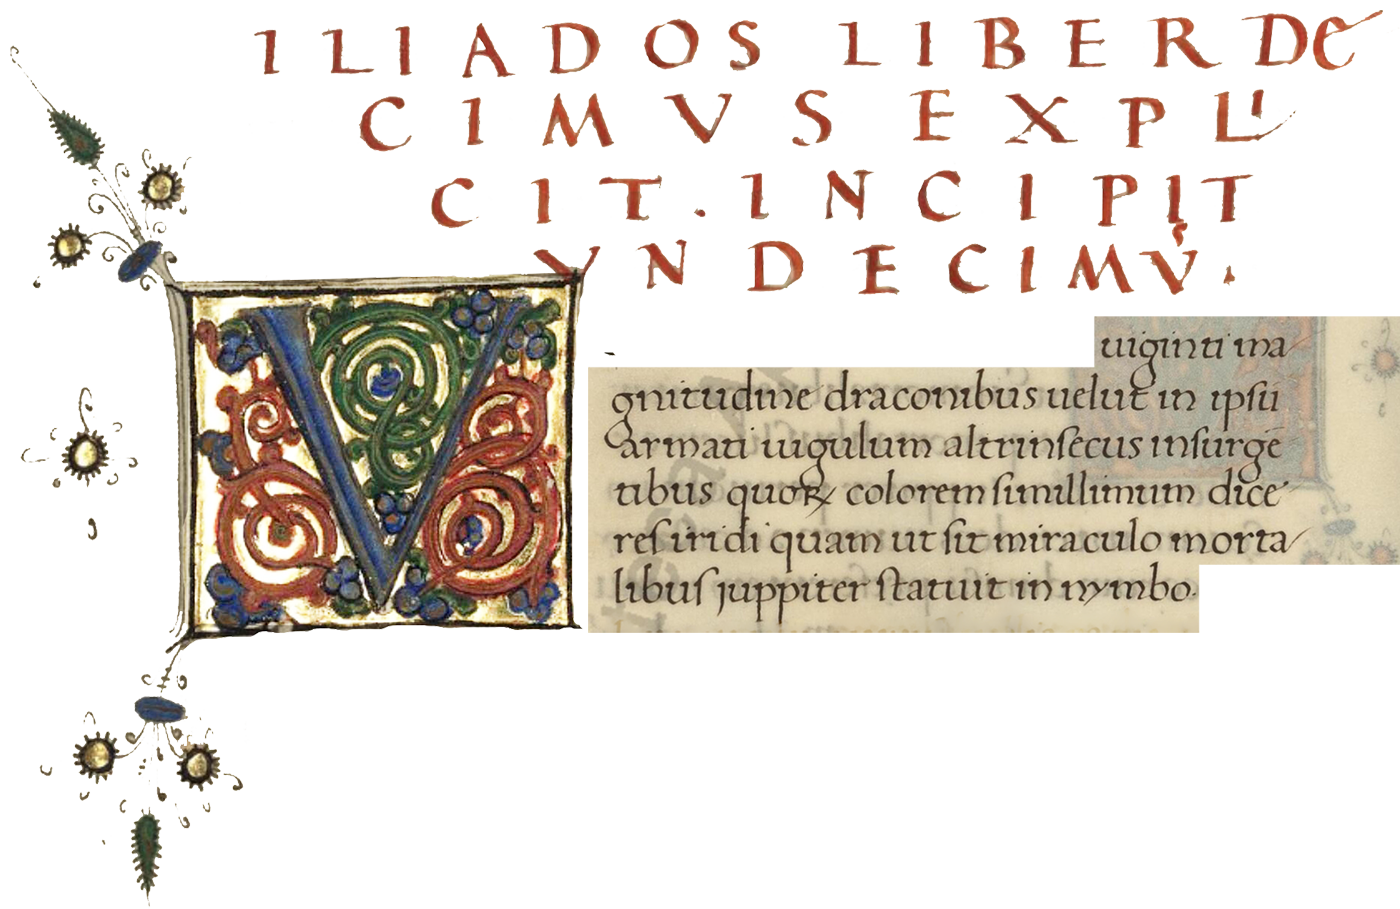 ILIADOS LIBER DE
CIMVS EXPLI
CIT. INCIPIT
VNDECIMVˢ.
V
uiginti ma
gnitudine draconibus uelut in ipsu
armati uigulum altrinsecus insurge
tibus quoꝝ colorem simillimum dice
res iridi quam ut sit miraculo morta
libus juppiter statuit in nymbo.